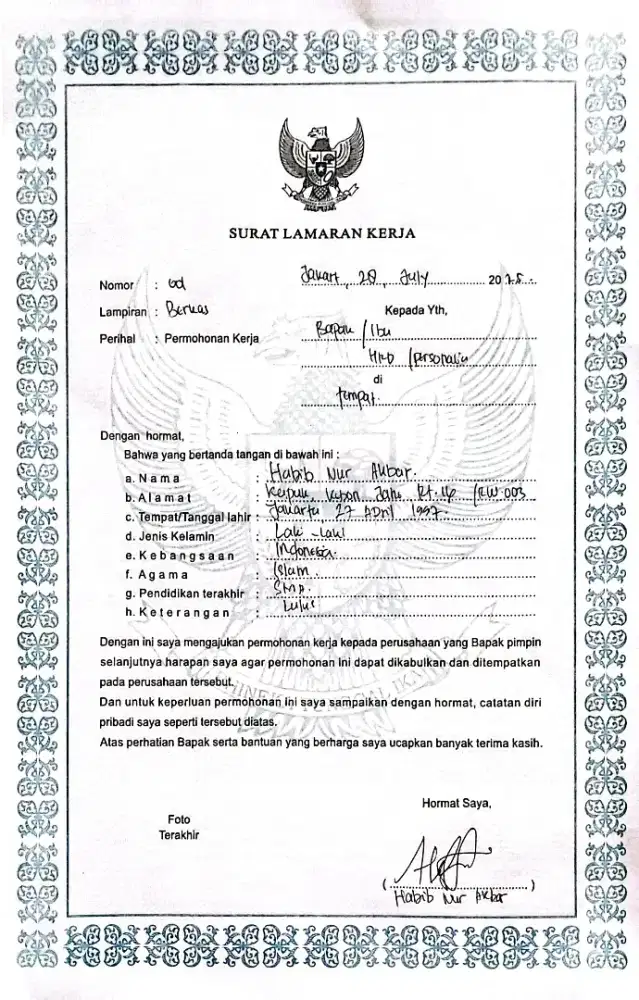 SURAT LAMARAN KERJA
Jakart, 28, July 2025.
Nomor :
Lampiran : Berkas
Kepada Yth,
Perihal : Permohonan Kerja
Bapak / Ibu
HRD / personalia
di
tempat.
Dengan hormat,
Bahwa yang bertanda tangan di bawah ini :
a. Nama : Habib Nur Akbar.
b. Alamat : Kebon Rt. 16 / RW 003
c. Tempat/Tanggal lahir : Jakarta 27 April 1997
d. Jenis Kelamin : Laki - laki
e. Kebangsaan : Indonesia.
f. Agama : Islam.
g. Pendidikan terakhir : SMP.
h. Keterangan : Lulus
Dengan ini saya mengajukan permohonan kerja kepada perusahaan yang Bapak pimpin
selanjutnya harapan saya agar permohonan ini dapat dikabulkan dan ditempatkan
pada perusahaan tersebut.
Dan untuk keperluan permohonan ini saya sampaikan dengan hormat, catatan diri
pribadi saya seperti tersebut diatas.
Atas perhatian Bapak serta bantuan yang berharga saya ucapkan banyak terima kasih.
Hormat Saya,
Foto
Terakhir
(....................)
Habib Nur Akbar